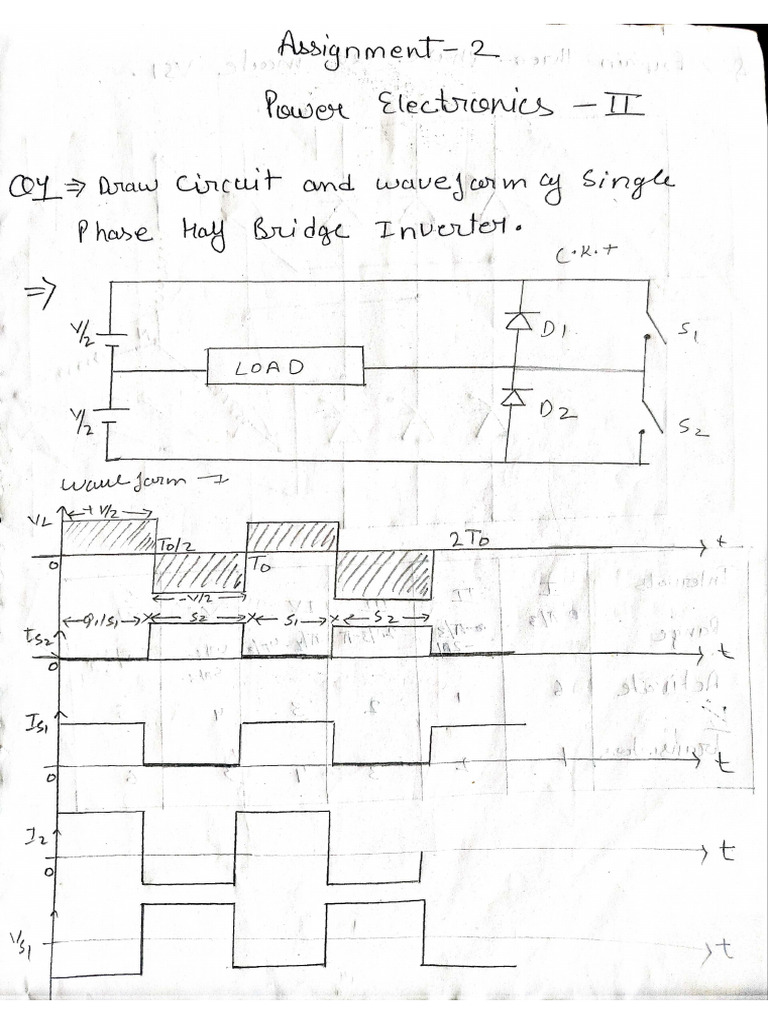 Assignment - 2
Power Electronics - II
Q1 ⇒ Draw circuit and waveform of Single
Phase Half Bridge Inverter.
C.K.T
⇒
V/2
D1
S1
LOAD
V/2
D2
S2
waveform →
VL
+ V/2
To/2
To
2To
t
0
- V/2
Q1/S1
S2
S1
S2
is2
0
t
Is1
0
t
I2
0
t
Vs1
t